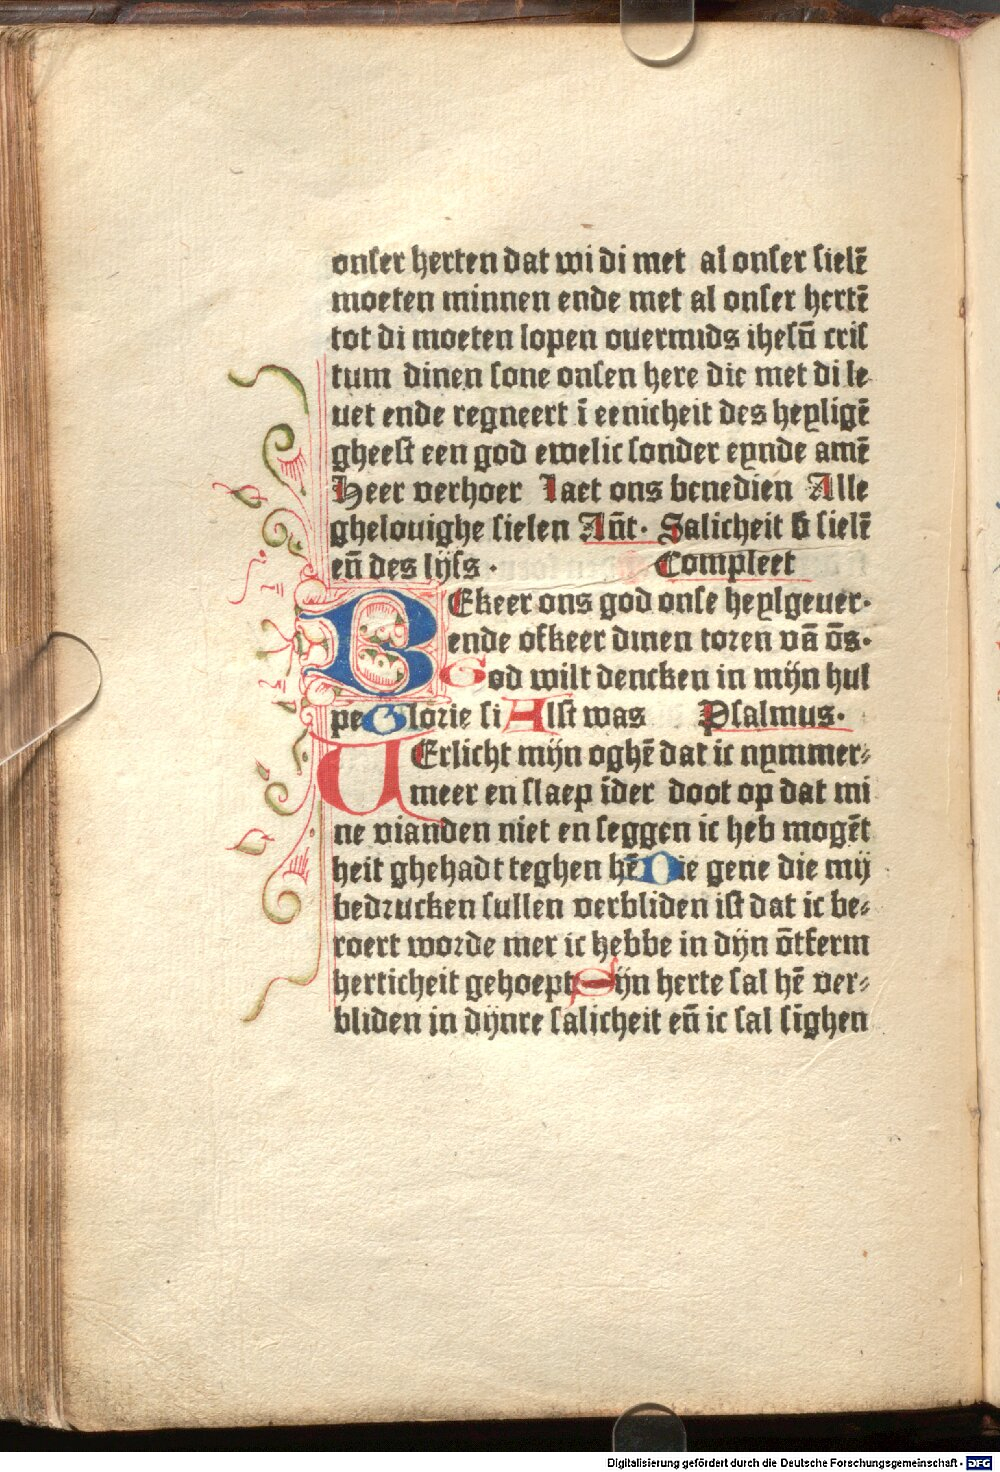 onser herten dat wi di met al onser sielē
moeten minnen ende met al onser hertē
tot di moeten lopen ouermids ihesū cris
tum dinen sone onsen here die met di le
uet ende regneert ī eenicheit des heyligē
gheest een god ewelic sonder eynde amē
Heer verhoer Laet ons benedien Alle
ghelouighe sielen Añt. Salicheit đ sielē
eñ des lijfs. Compleet
BEkeer ons god onse heylgeuer.
ende ofkeer dinen toren vā ōs.
God wilt dencken in mijn hul
pe Glorie si Alst was Psalmus.
VErlicht mijn oghē dat ic nymmer⸗
meer en slaep īder doot op dat mi
ne vianden niet en seggen ic heb mogēt
heit ghehadt teghen hē Die gene die mij
bedrucken sullen verbliden ist dat ic be⸗
roert worde mer ic hebbe in dijn ōtferm
herticheit gehoept Mijn herte sal hē ver⸗
bliden in dijnre salicheit eñ ic sal sīghen
Digitalisierung gefördert durch die Deutsche Forschungsgemeinschaft - DFG